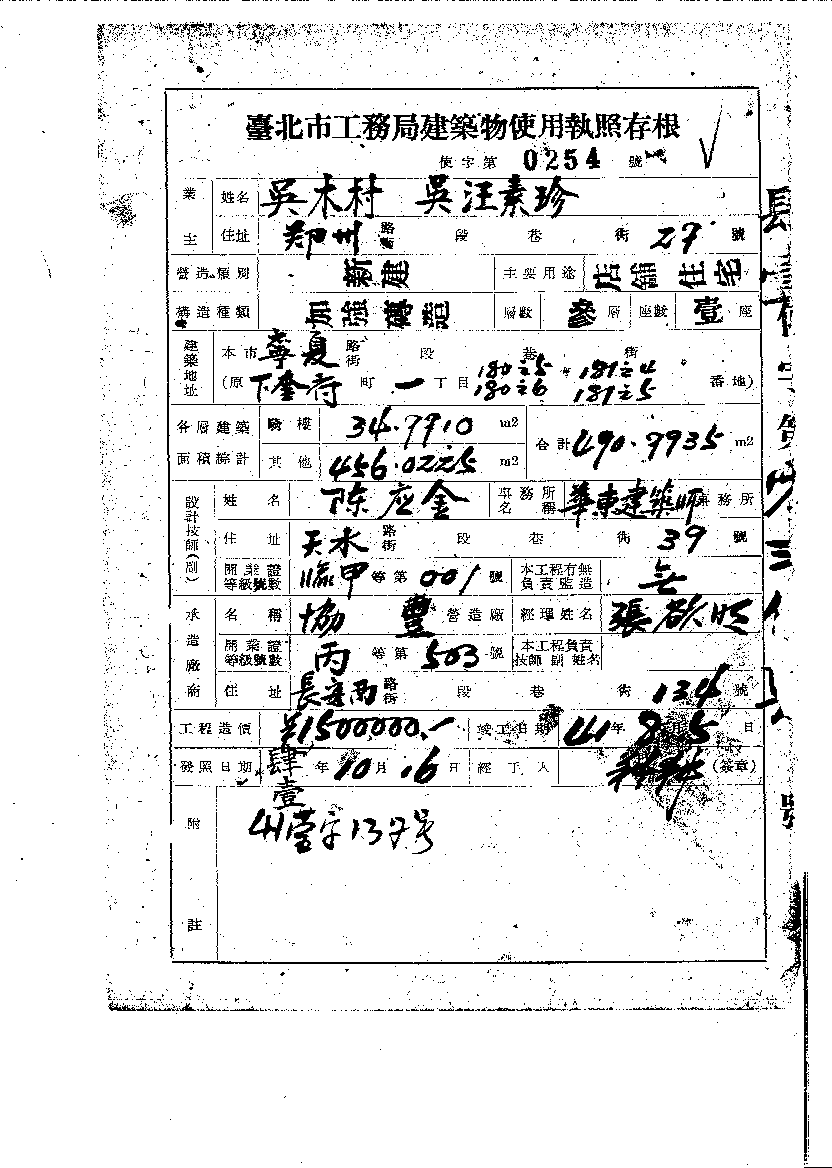 臺北市工務局建築物使用執照存根
使字第 0254 號
業主 姓名 吳木村 吳汪素珍
住址 鄭州 路 段 巷 街 27 號
營造類別 新建 主要用途 店舖住宅
構造種類 加強磚造 層數 參層 座數 壹座
建築地址 本市 寧夏 路街 段 巷 街
(原 下奎府 町 一 丁目 180之5 181之4 180之6 181之5 番地)
各層建築面積綜計 騎樓 34.9910 m2 合計 490.9935 m2
其他 456.0225 m2
設計技師(副) 姓名 陳应金 事務所名稱 華東建築師事務所
住址 天水 路街 段 巷 街 39 號
開業證等級號數 臨甲 等第 001 號 本工程有無負責監造 無
承造廠商 名稱 協豐 營造廠 經理姓名 張欽
開業證等級號數 丙 等第 503 號 本工程負責技師副姓名
住址 長安西 路街 段 巷 街 134 號
工程造價 1500000.- 竣工日期 41年 8 5日
發照日期 肆壹年10月16日 經手人 (簽章)
附註 41營字137号